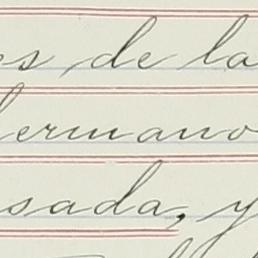 es de la
hermano
sada, y